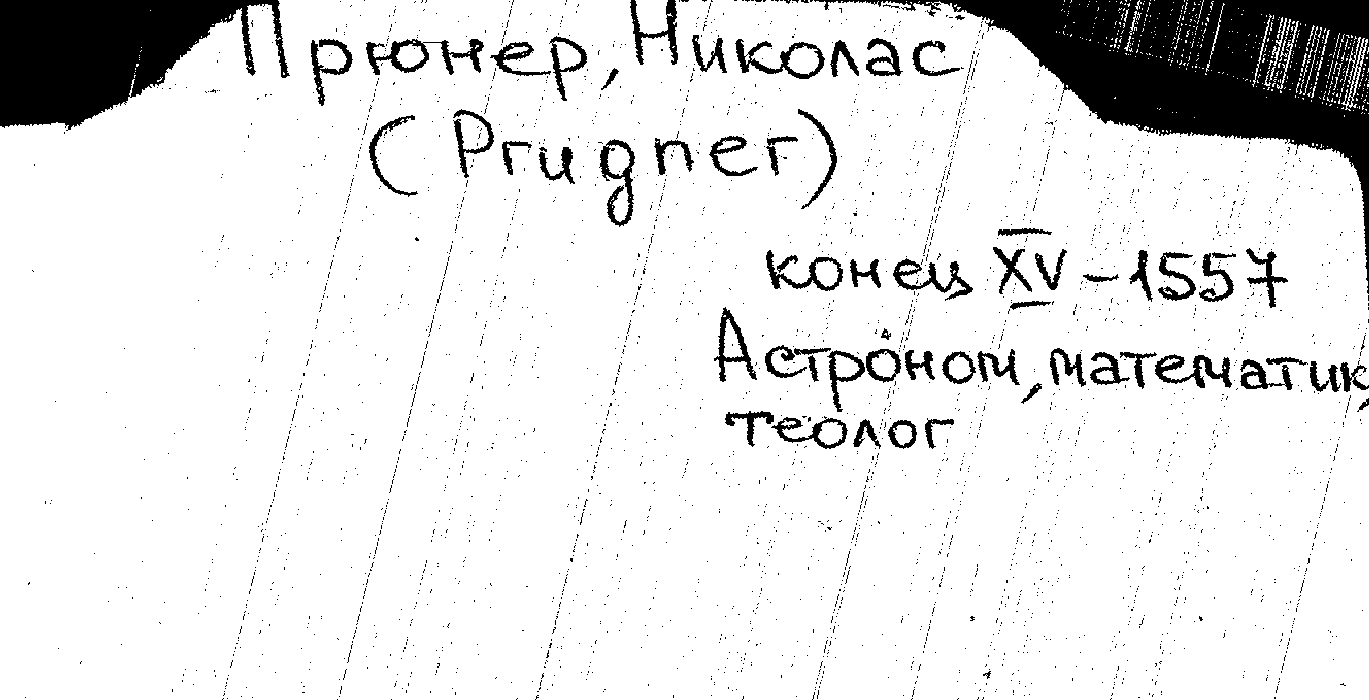 Прюнер, Николас
(Prugner)
конец XV - 1557
Астроном, математик,
теолог